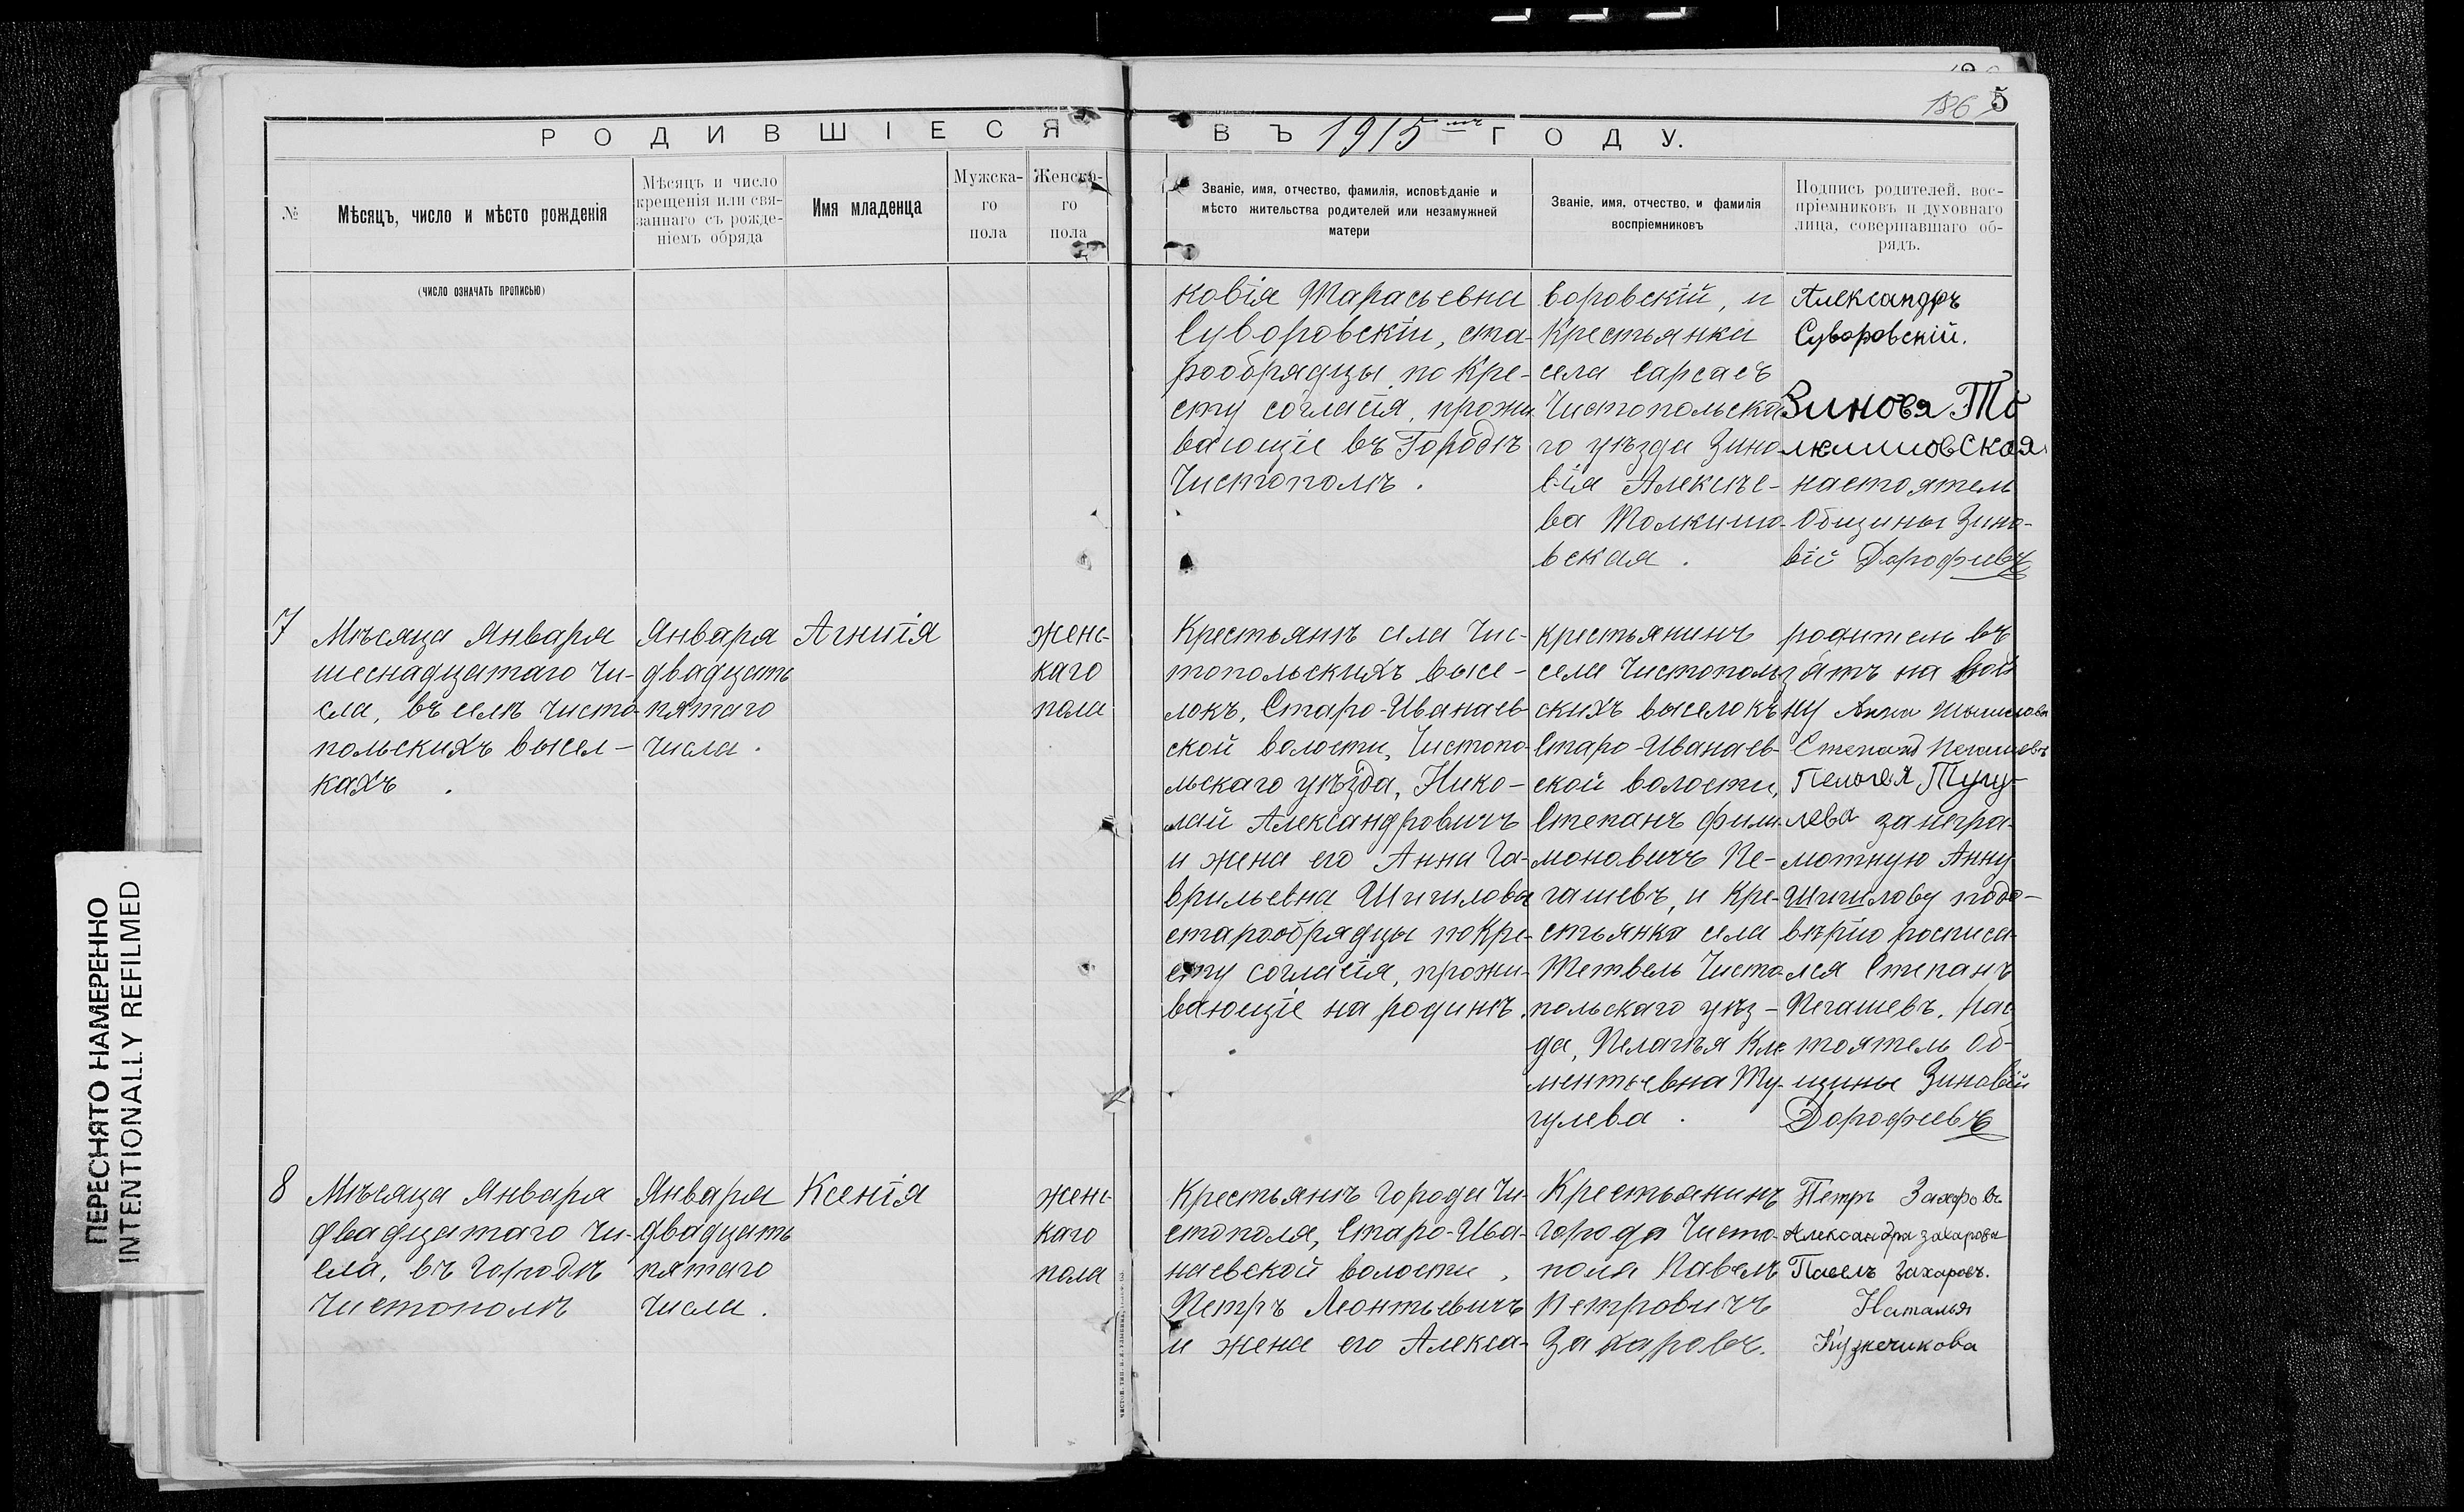 186 5
РОДИВШІЕСЯ ВЪ 1915 мъ ГОДУ.
№
Мѣсяцъ, число и мѣсто рожденія
Мѣсяцъ и число
крещенія или свя-
заннаго съ рожде-
ніемъ обряда
Имя младенца
Мужска-
го
пола
Женска-
го
пола
Званіе, имя, отчество, фамилія, исповѣданіе и
мѣсто жительства родителей или незамужней
матери
Званіе, имя, отчество, и фамилія
воспріемниковъ
Подпись родителей, вос-
пріемниковъ и духовнаго
лица, совершавшаго об-
рядъ.
(число означать прописью)
ковія Тарасьевна
Суворовскіи, ста-
рообрядцы по Кре-
сту согласія, прожи
вающіе въ Городѣ
Чистополѣ.
воровскій, и
Крестьянка
села Сарсасъ
Чистопольска
го уѣзда Зино-
вія Алексѣе-
ва Толкишо-
вская.
Александръ
Суворовскій.
Зиновя То
лкишовская
настоятель
Общины Зино-
вій Дорофиевъ
7
Мѣсяца Января
шеснадцатаго Чи-
сла, въ селѣ Чисто-
польскихъ высел-
кахъ.
Января
двадцать
пятаго
Числа.
Агнія
женс-
каго
пола
Крестьянъ села Чис-
топольскихъ высе-
локъ, Старо-Иванаев-
ской волости, Чистопо-
льскаго уѣзда, Нико-
лай Александровичъ
и жена его Анна Га-
врильевна Шигилова
старообрядцы по Кре-
сту согласія, прожи-
вающіе на родинѣ.
крестьянинъ
села Чистополь
скихъ выселокъ
Старо-Иванаев-
ской волости,
Степанъ Фили-
моновичъ Пе-
гашевъ, и Кре-
стьянка села
Жетвель Чисто-
польскаго уѣз-
да, Пелагѣя Кле-
ментьевна Ту-
гулева.
родитель въ
зятъ на вой
ну Анна
Степанъ Пегашевъ
Пелогея Тугу-
лева за негра-
мотную Анну
Шигилову по до-
вѣрію росписа-
лся Степанъ
Пегашевъ. Нас
тоятель Об-
щины Зиновій
Дорофиевъ
8
Мѣсяца Января
двадцатаго Чи-
сла, въ Городѣ
Чистополѣ
Января
двадцать
пятаго
Числа.
Ксенія
женс-
каго
пола
Крестьянъ Города Чи-
стополя, Старо-Ива-
наевской волости,
Петръ Леонтьевичъ
и жена его Алекса-
Крестьянинъ
города Чисто-
поля Павелъ
Петровичъ
Захаровъ.
Петръ Захаровъ
Александра захарова
Павелъ Захаровъ.
Наталья
Кузнечикова
ПЕРЕСНЯТО НАМЕРЕННО
INTENTIONALLY REFILMED